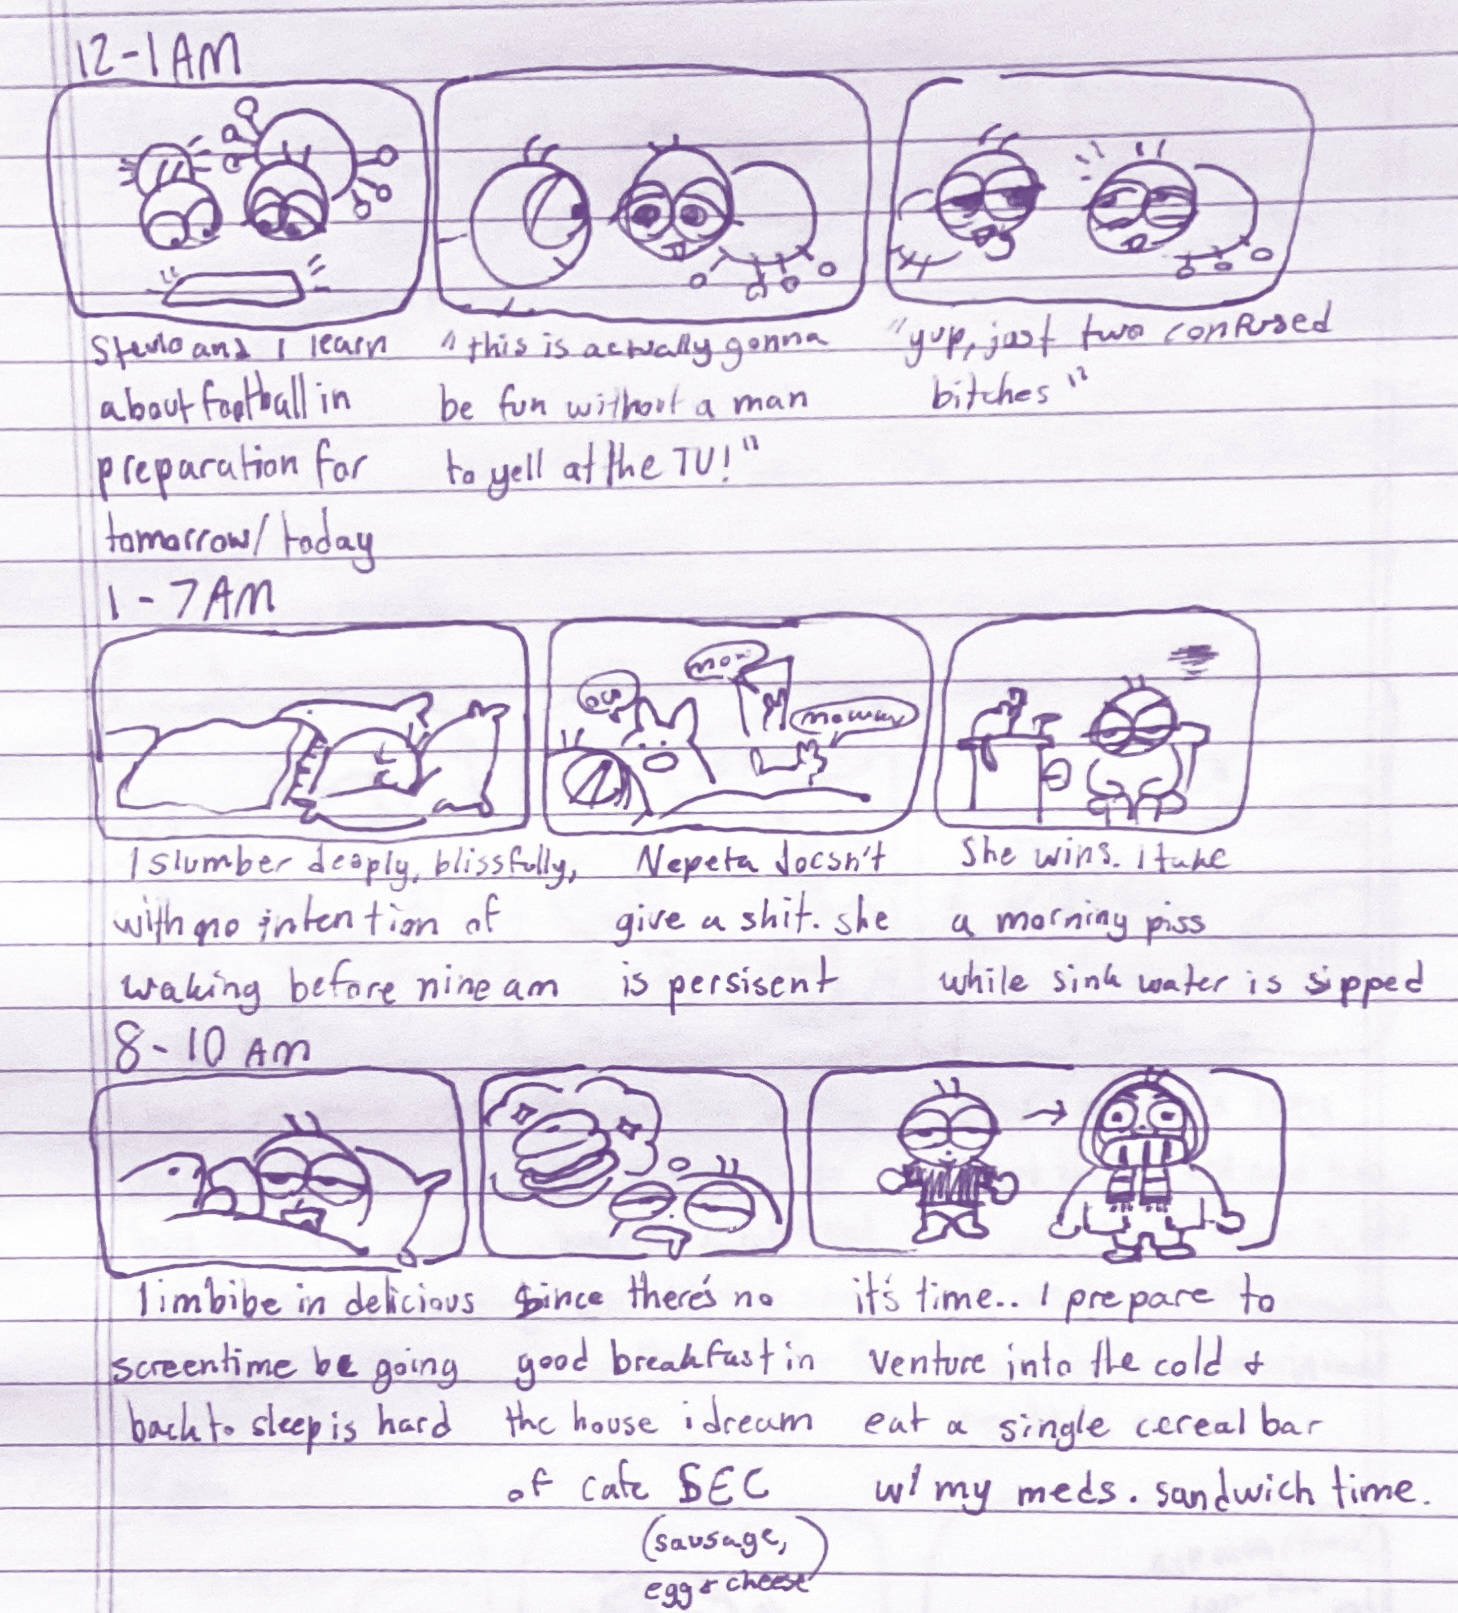 12-1AM
Stevlo and I learn
about football in
preparation for
tomorrow/today
"this is actually gonna
be fun without a man
to yell at the TV!"
"yup, just two confused
bitches"
1-7AM
mow
moww
I slumber deeply, blissfully,
with no intention of
waking before nine am
Nepeta doesn't
give a shit. she
is persisent
She wins. I take
a morning piss
while sink water is sipped
8-10 AM
I imbibe in delicious
screentime bc going
back to sleep is hard
Since there's no
good breakfast in
the house i dream
of cafe SEC
(sausage,
egg & cheese)
it's time.. I prepare to
venture into the cold &
eat a single cereal bar
w/ my meds. sandwich time.